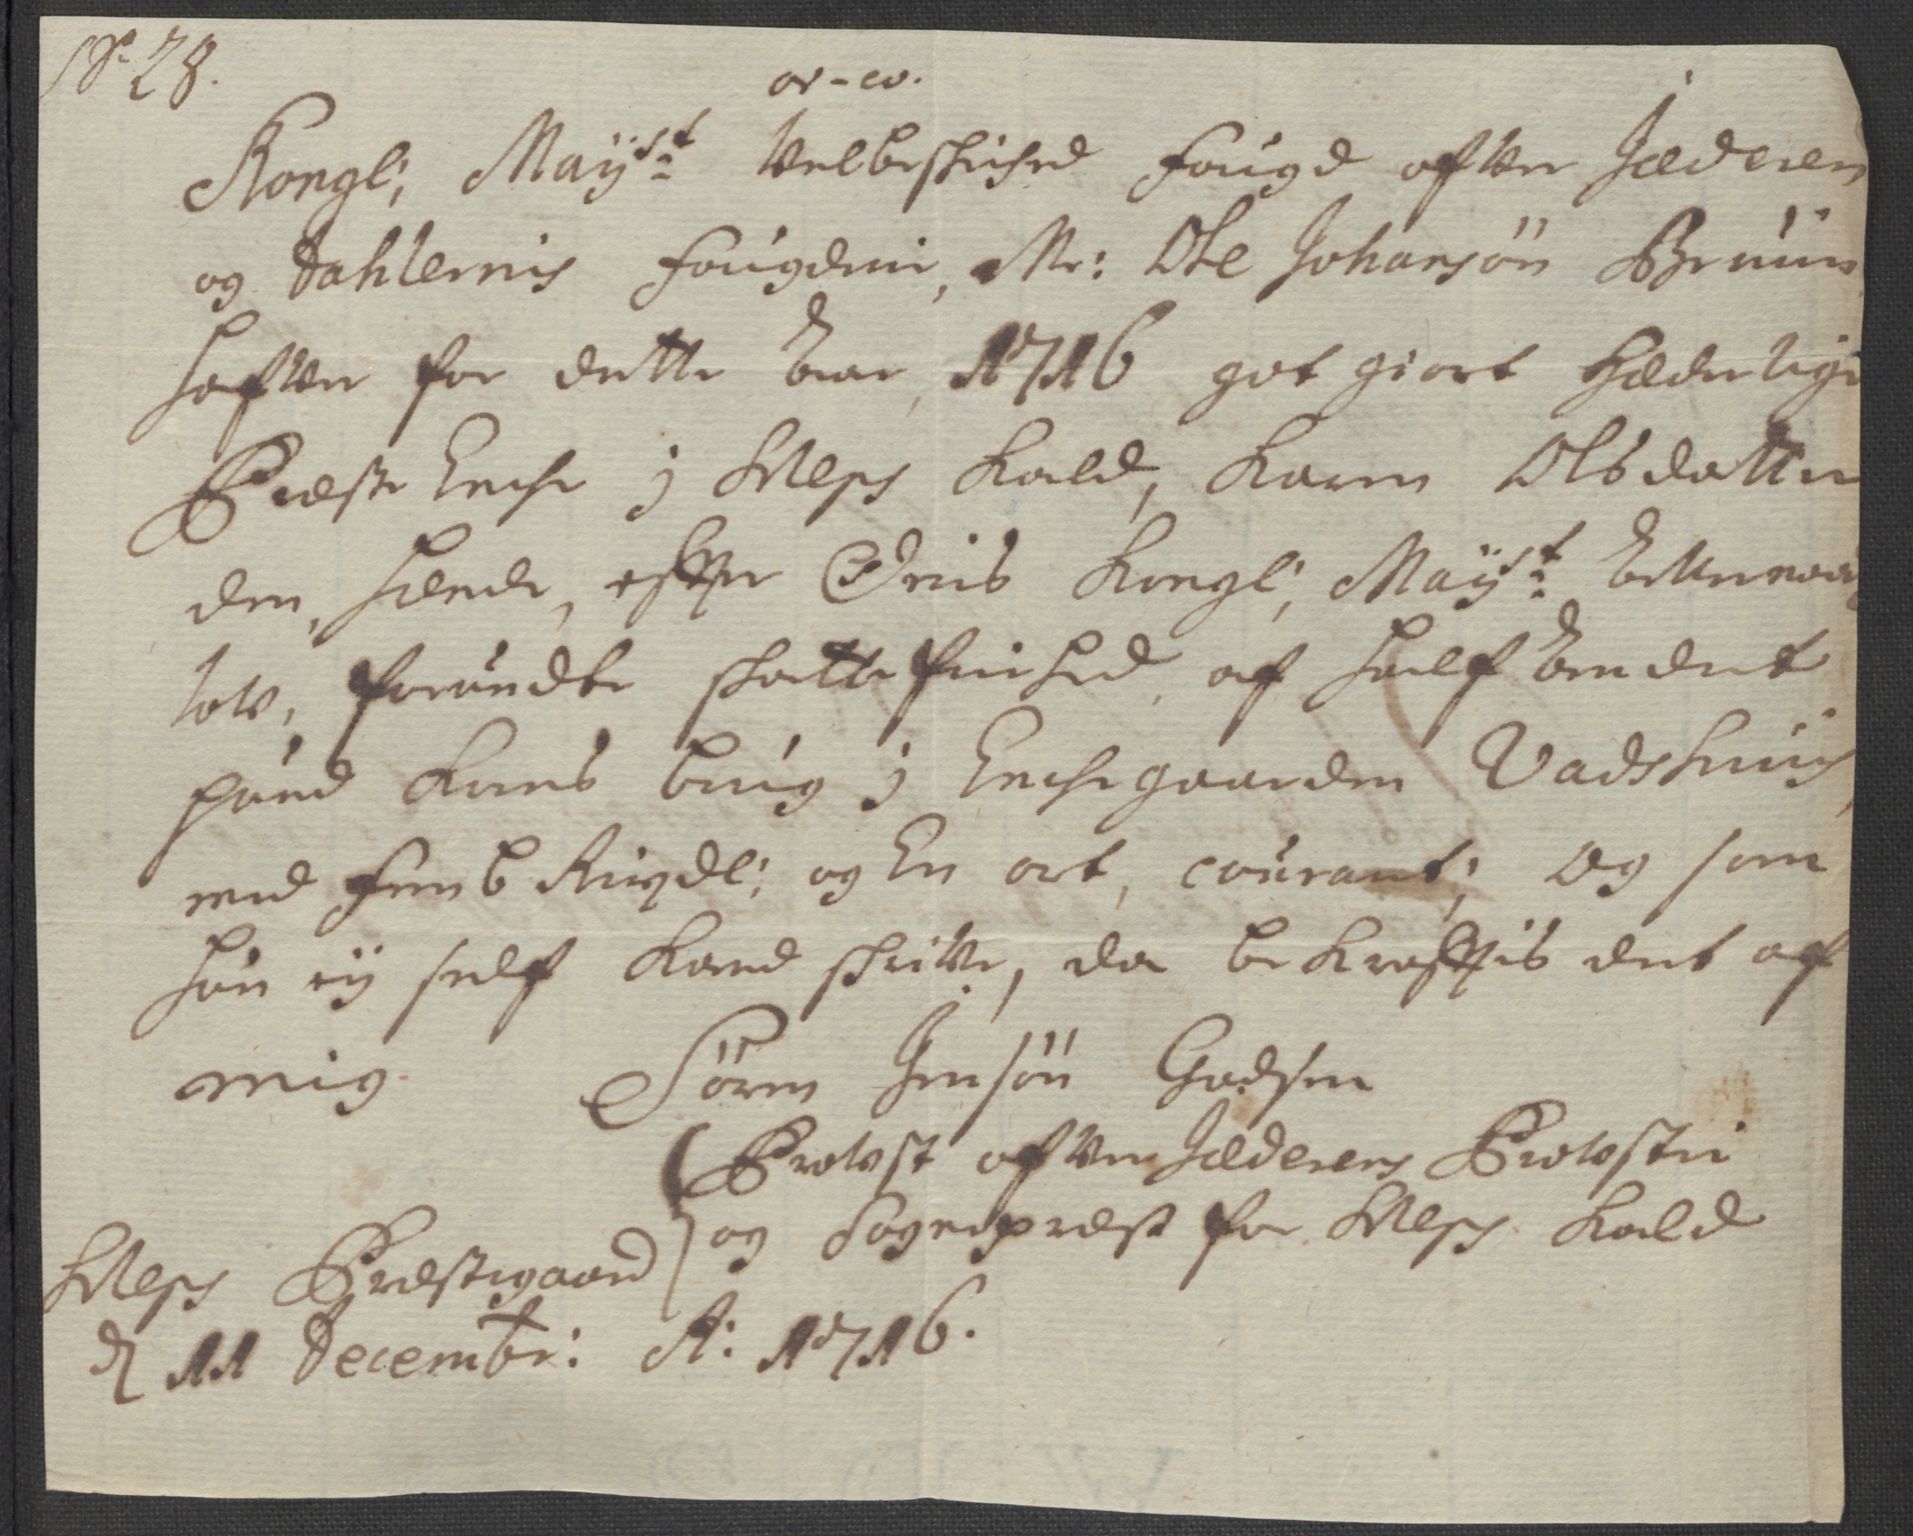 No 28.
ω-ω.
Kongl: Maÿst Velbeskiched Fougd ofver Jæderen
og Dahlernis Fougderi, Mr: Ole Johansön Bruun
hafver for dette Aar, 1716 got giort Hæderlige
Præste Enche i Kleps Kald, Karen Olsdatter
den, hende, efter Deris Kongl: Mayst: allernaa¡
lov, forundte skatte frihed af half andet
pund Korns brug i Enchegaarden Vadshuus,
med Fem b Rixdl: og En ort, courant; Og som
hun eÿ self kand skrive, da bekreftis det af
mig Sören Jensön Godsen
Provst ofver Jæderens Provsti
og Sogneprest for Kleps Kald
Kleps Præstegaard
d 11 Decembr: A: 1716.